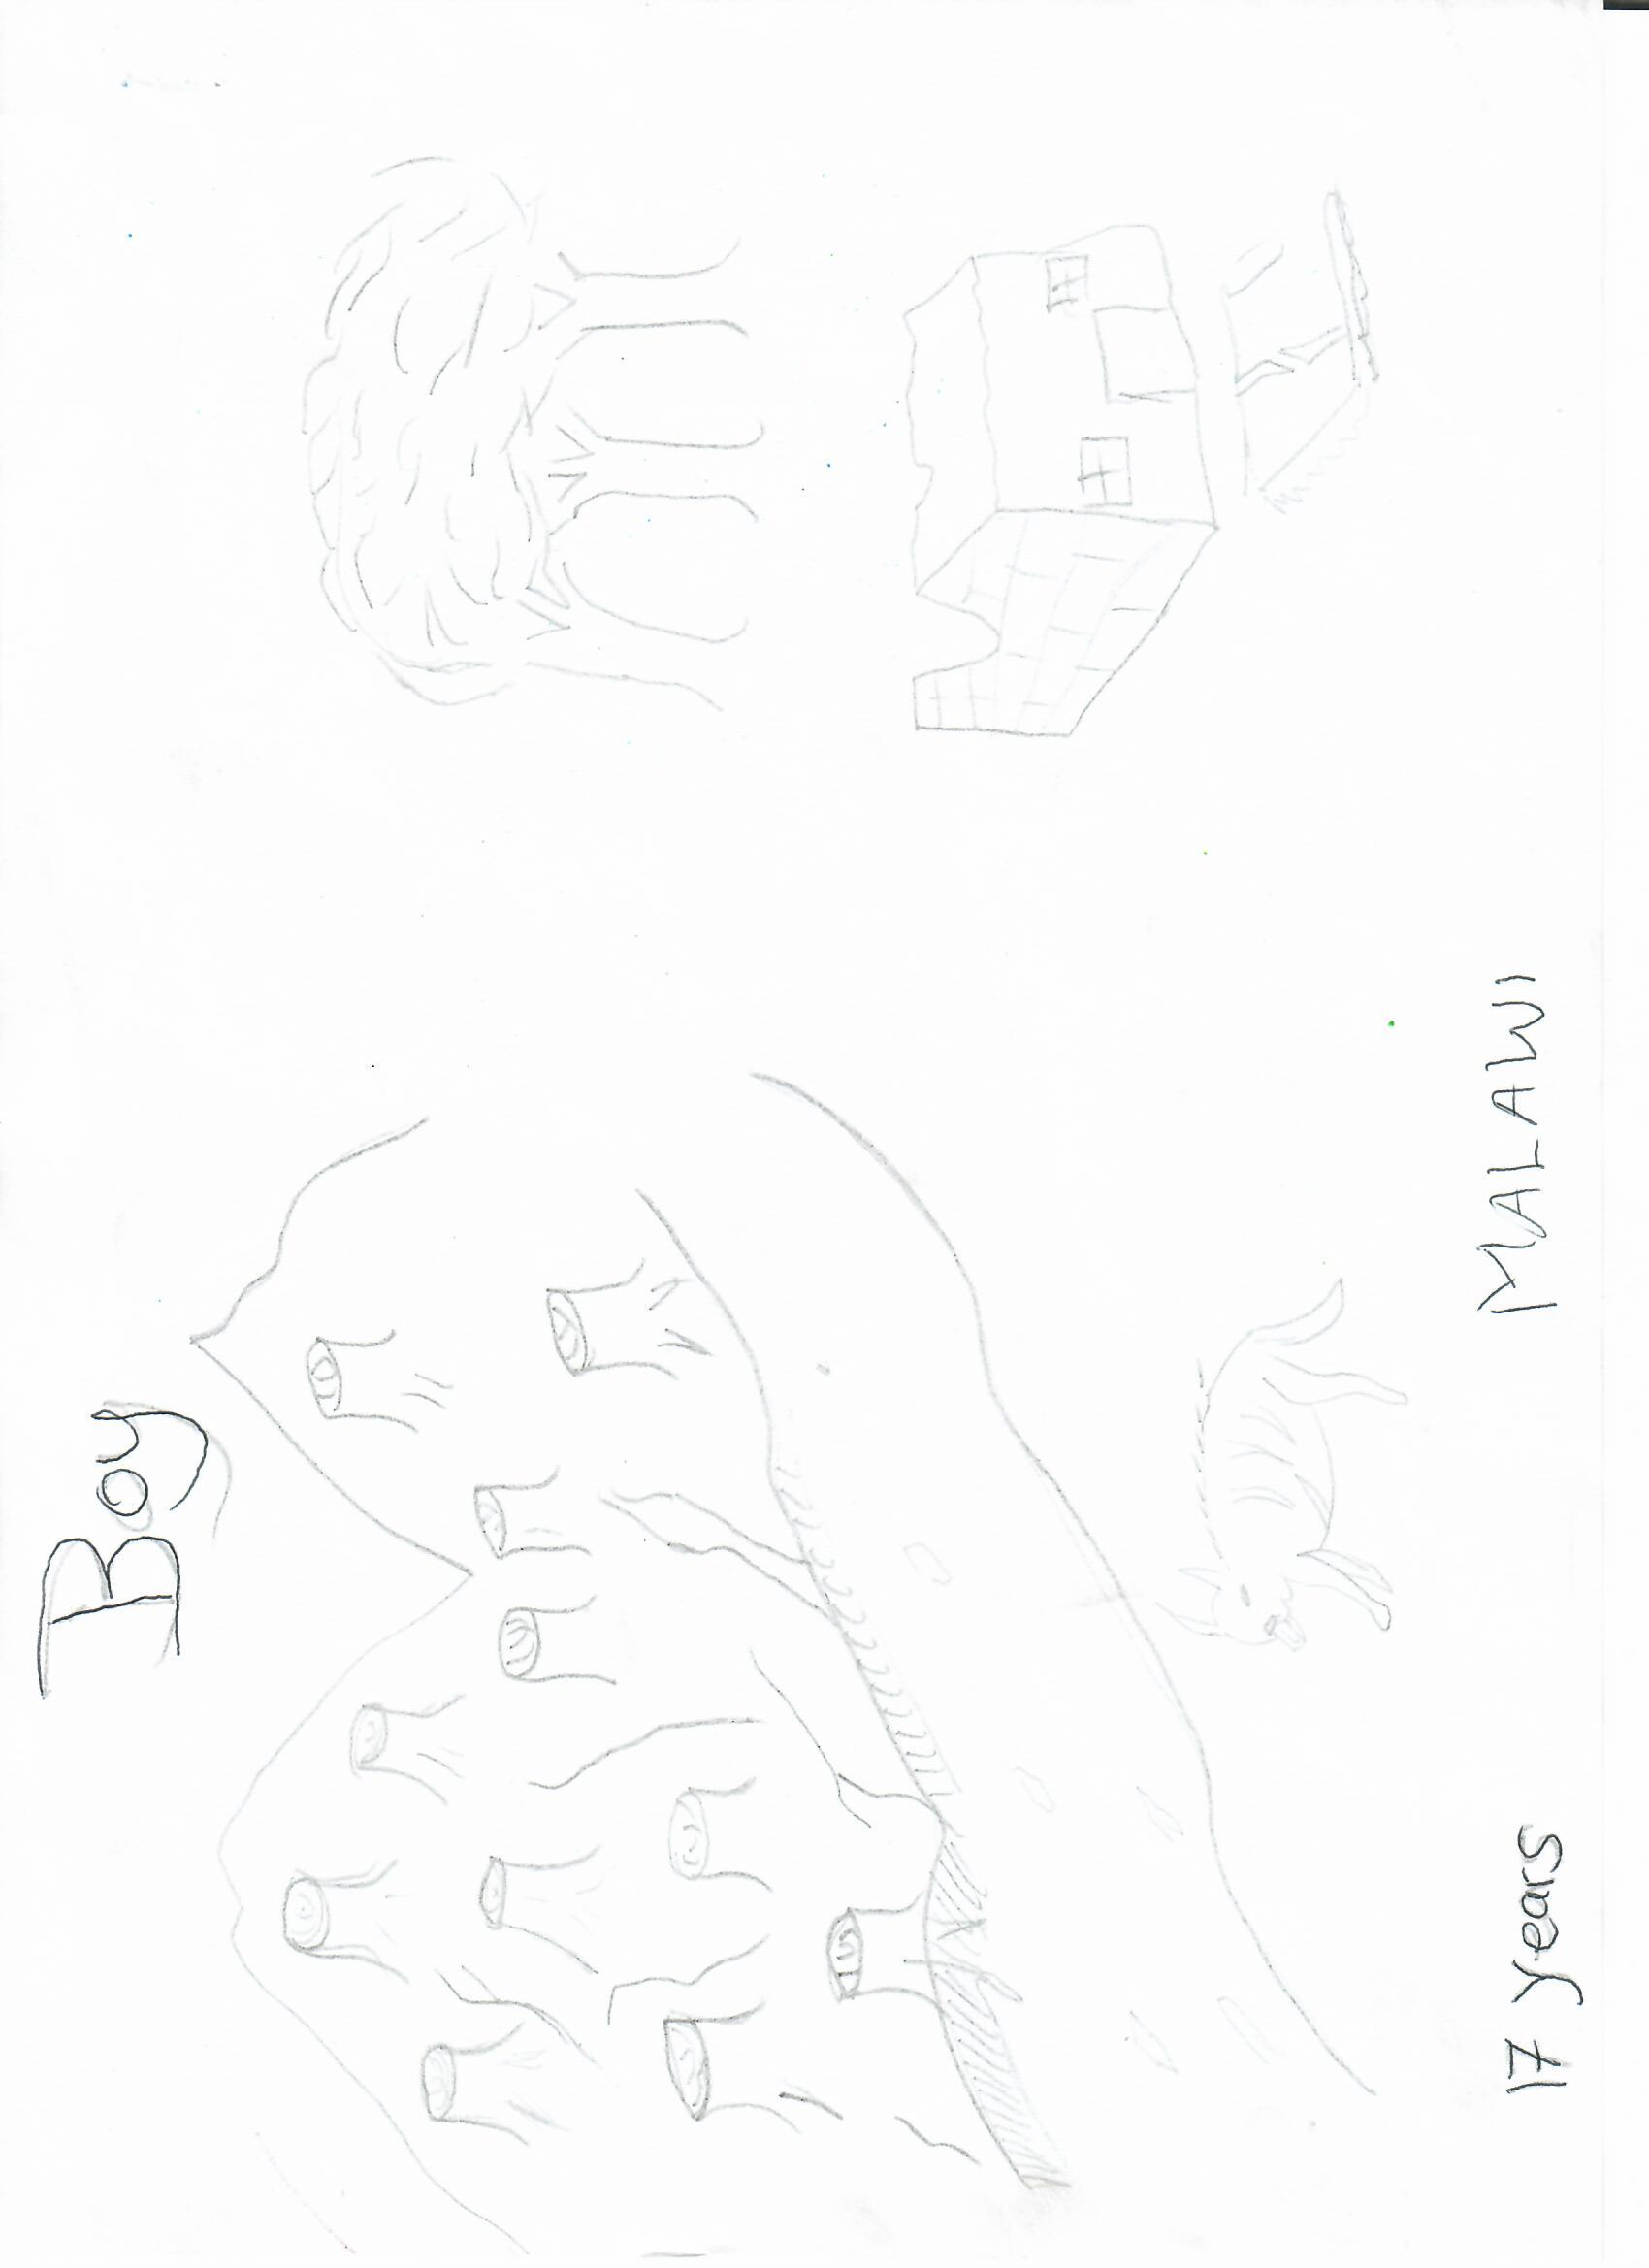 Boy
17 years
MALAWI